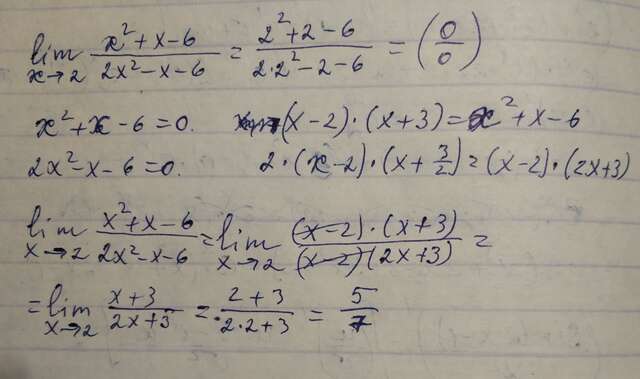 lim x→2 (x²+x-6)/(2x²-x-6) = (2²+2-6)/(2·2²-2-6) = (0/0)
x²+x-6=0. (x-2)·(x+3)=x²+x-6
2x²-x-6=0. 2·(x-2)·(x+3/2)=(x-2)·(2x+3)
lim x→2 (x²+x-6)/(2x²-x-6) = lim x→2 ((x-2)·(x+3))/((x-2)(2x+3)) =
= lim x→2 (x+3)/(2x+3) = (2+3)/(2·2+3) = 5/7